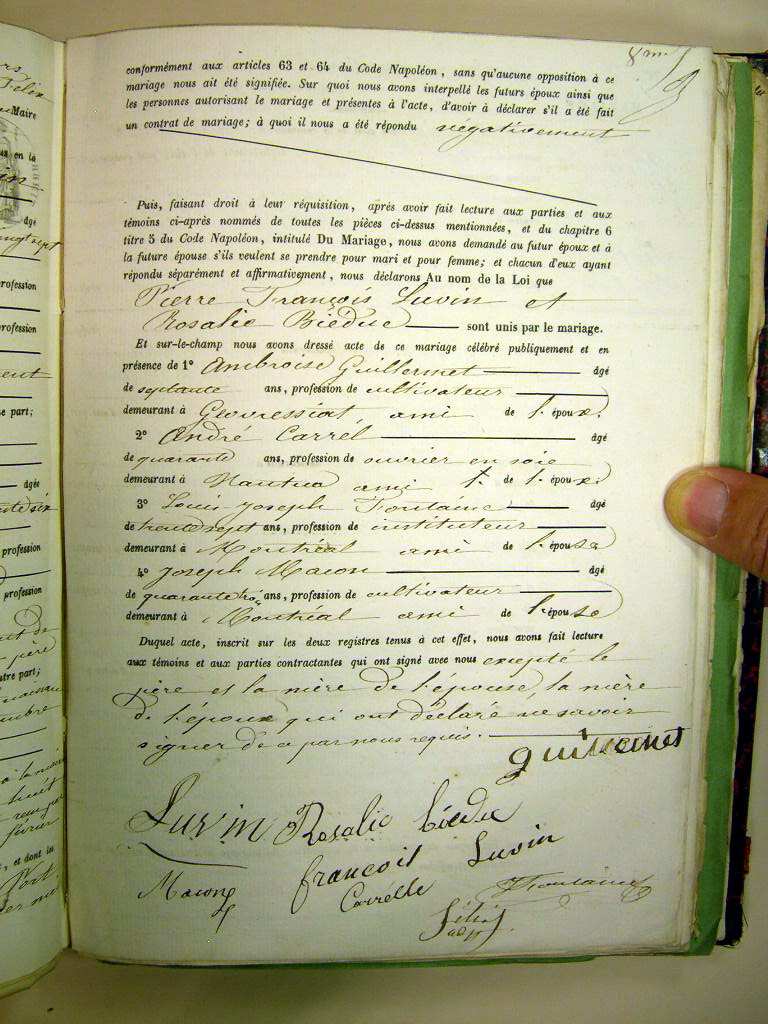 8me
conformément aux articles 63 et 64 du Code Napoléon, sans qu'aucune opposition à ce
mariage nous ait été signifiée. Sur quoi nous avons interpellé les futurs époux ainsi que
les personnes autorisant le mariage et présentes à l'acte, d'avoir à déclarer s'il a été fait
un contrat de mariage; à quoi il nous a été répondu negativement
Puis, faisant droit à leur réquisition, après avoir fait lecture aux parties et aux
témoins ci-après nommés de toutes les pièces ci-dessus mentionnées, et du chapitre 6
titre 5 du Code Napoléon, intitulé Du Mariage, nous avons demandé au futur époux et à
la future épouse s'ils veulent se prendre pour mari et pour femme; et chacun d'eux ayant
répondu séparément et affirmativement, nous déclarons Au nom de la Loi que
Pierre François Luvin et
Rosalie Biéduc sont unis par le mariage.
Et sur-le-champ nous avons dressé acte de ce mariage célébré publiquement et en
présence de 1° Ambroise Guillermet âgé
de septante ans, profession de cultivateur
demeurant à Geovressiat, ami de l'époux.
2° André Carrel âgé
de quarante ans, profession de ouvrier en soie
demeurant à Nantua ami de l'époux.
3° Louis Joseph Fontaine âgé
de trente sept ans, profession de instituteur
demeurant à Montréal ami de l'épouse
4° Joseph Macon âgé
de quarante trois ans, profession de cultivateur
demeurant à Montréal ami de l'épouse
Duquel acte, inscrit sur les deux registres tenus à cet effet, nous avons fait lecture
aux témoins et aux parties contractantes qui ont signé avec nous excepté le
père et la mère de l'épouse, la mère
de l'époux qui ont déclaré ne savoir
signer de ce par nous requis.
guillermet
Luvin Rosalie biéduc
françois Luvin
Macon Carrelle Fontaine
Félix
adjt